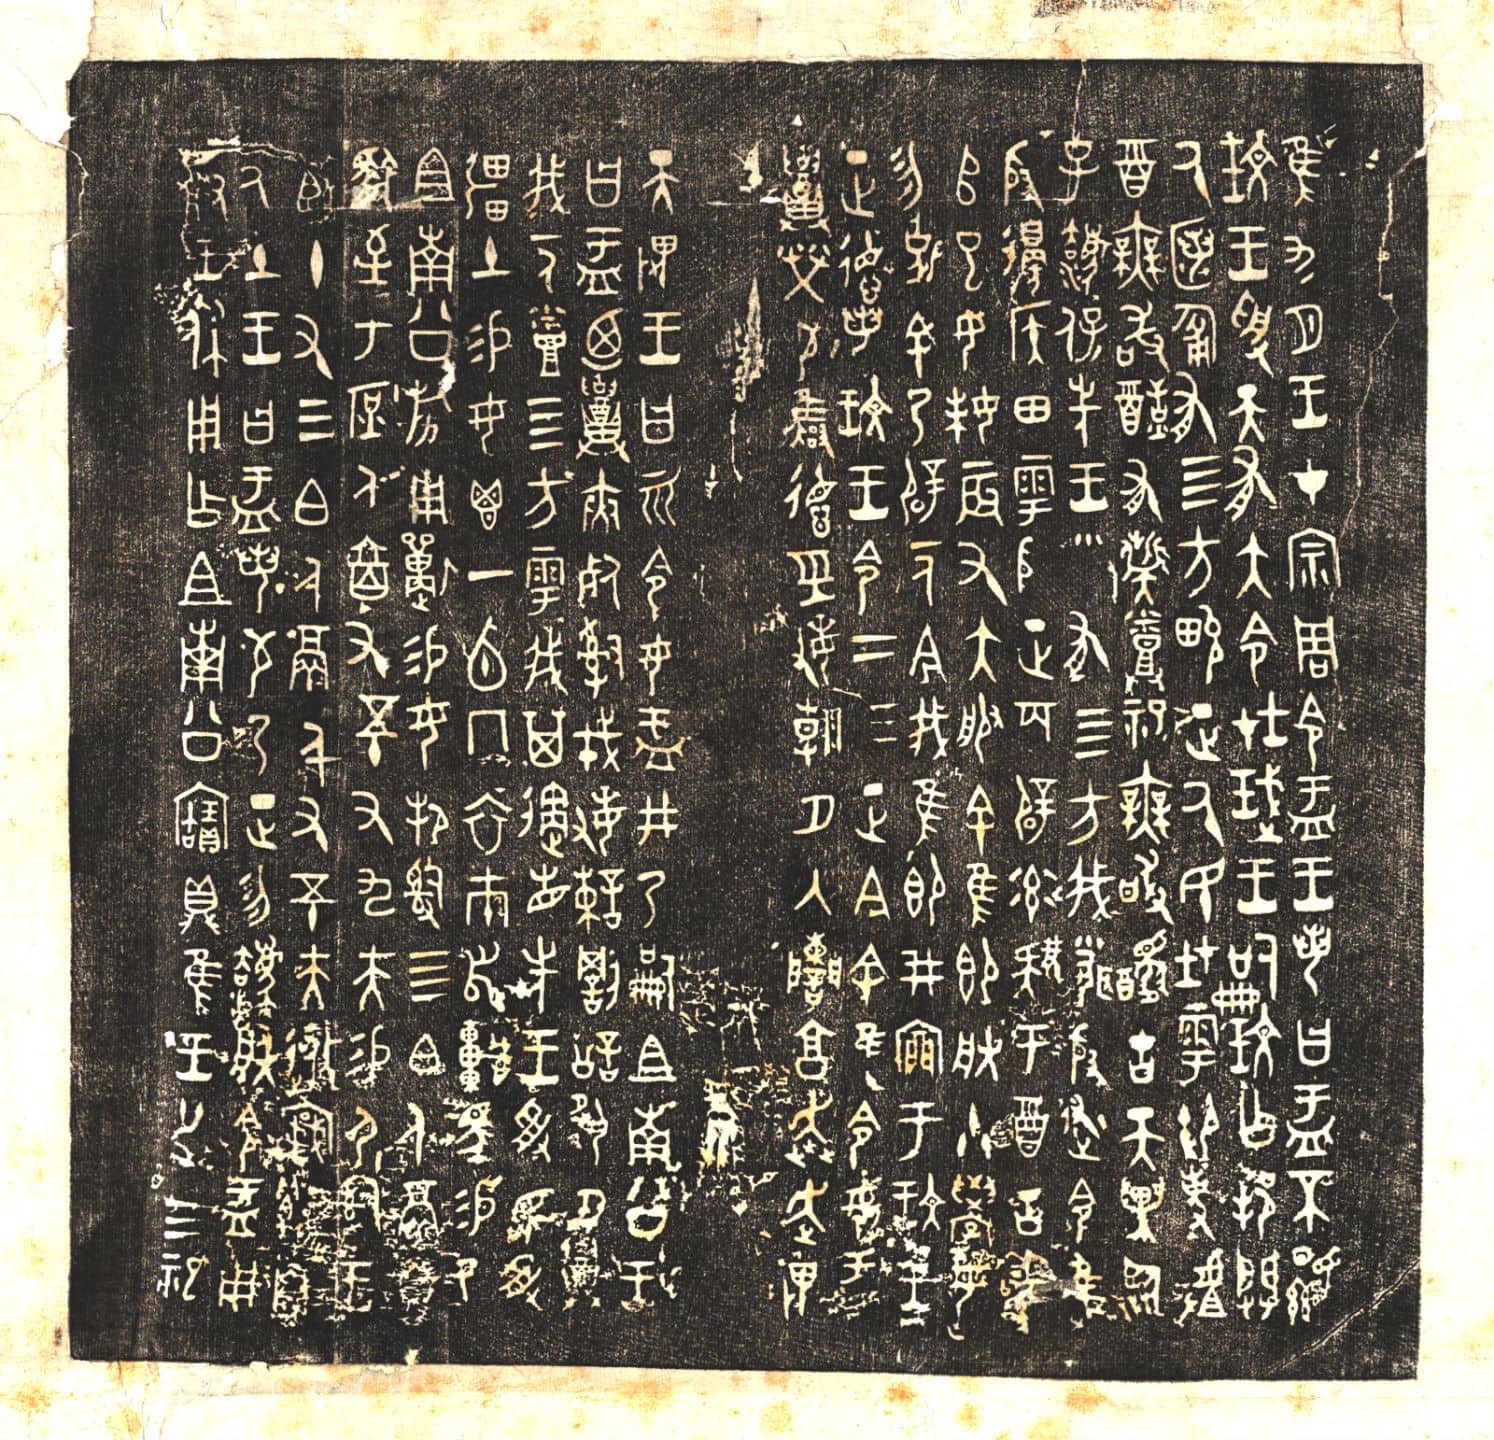 隹九月王才宗周令盂王若曰盂不顯
玟王受天有大令在珷王嗣玟乍邦闢
厥匿匍有四方畯正厥民在雩御事𠭯
酉無敢酖有祡烝祀無敢醻古天異臨
子灋保先王有四方我聞殷述令隹
殷邊侯田雩殷正百辟率肄于酉古喪師
巳女妹辰又大服余隹即朕小學女勿
𠈇余乃辟一人今我隹即井㐭于玟王
正德若玟王令二三正今余隹令女盂
召榮敬雝德巠敏朝夕入讕享奔走畏
天畏王曰而令女盂井乃嗣且南公王
曰盂廼召夾死𤔲戎敏諫罰訟夙夕召
我一人烝四方雩我其遹省先王受民受
疆土易女鬯一卣冂衣巿舄車馬易乃
且南公旂用狩易女邦𤔲四白人鬲自
馭至于庶人六百又五十又九夫易尸𤔲王
臣十又三白人鬲千又五十夫亟𡩜遷自
厥土王曰盂若敬乃正勿灋朕令盂用
對王休用乍且南公寶鼎隹王廿又三祀